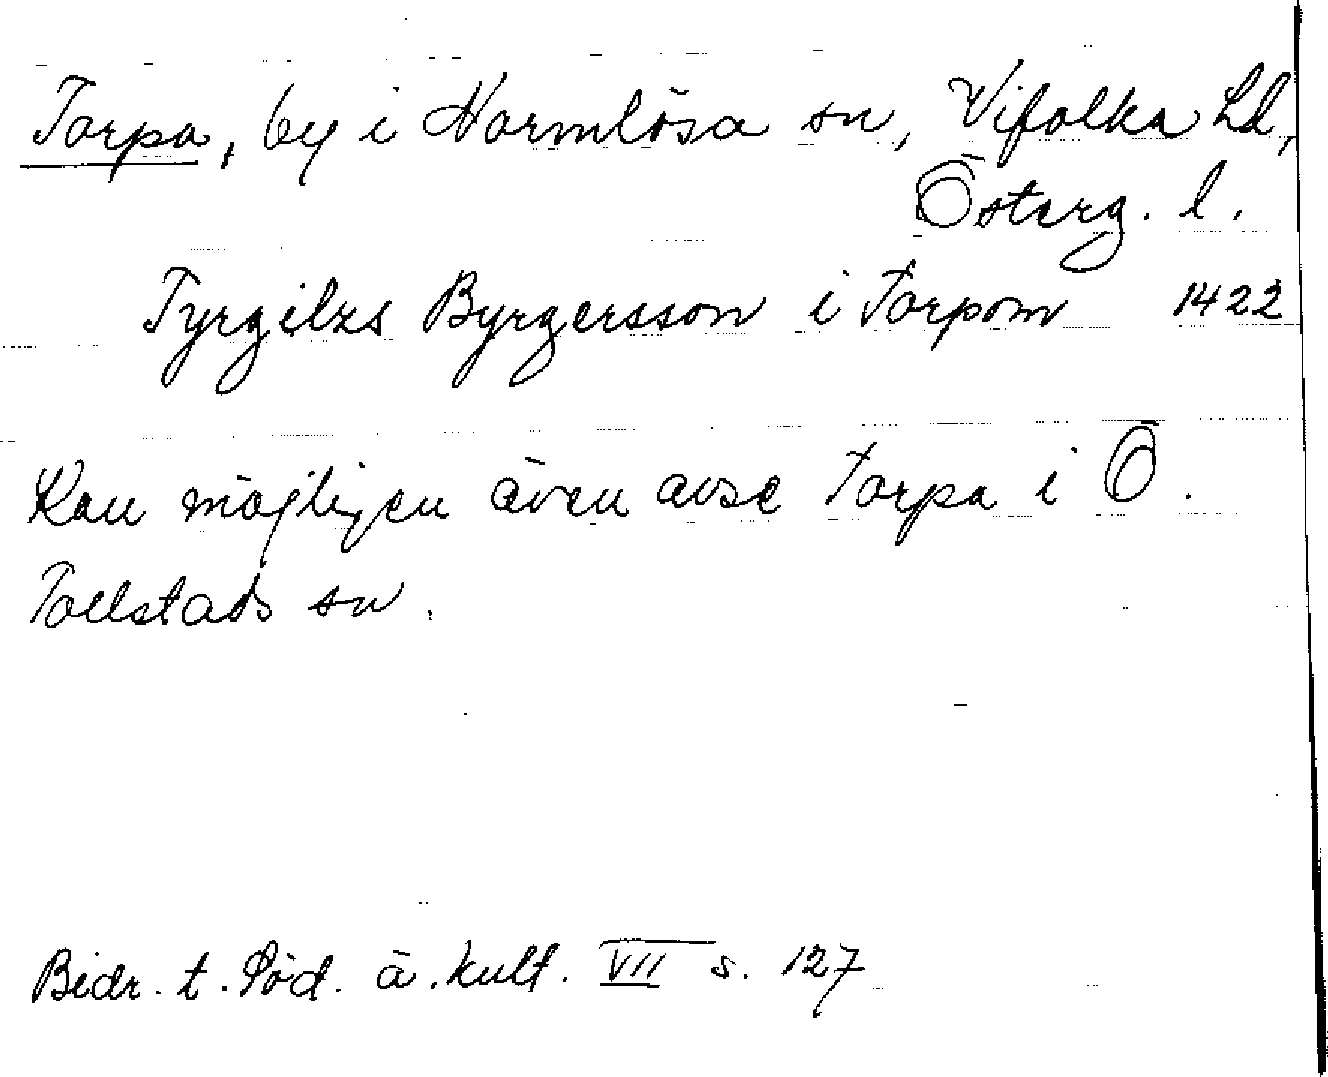 Torpa, by i Normlösa sn, Vifolka hd,
Österg. l.
Tyrgilzs Byrgersson i Torpom 1422
Kan möjligen även avse Torpa i Ö.
Tollstads sn.
Bidr. t. Söd. ä. kult. VII s. 127